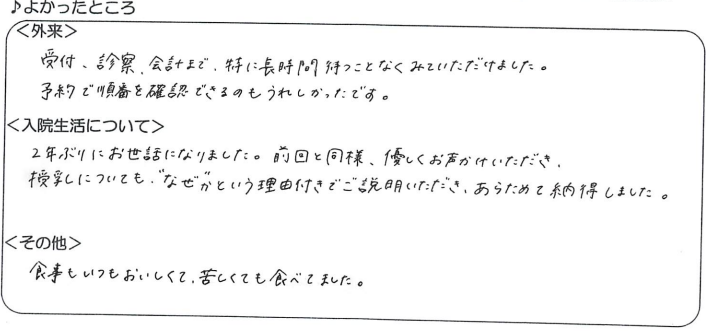 ♪よかったところ
＜外来＞
受付、診察、会計まで、特に長時間待つことなくみていただけました。
予約で順番を確認できるのもうれしかったです。
＜入院生活について＞
2年ぶりにお世話になりました。前回と同様、優しくお声がけいただき、
授乳についても、"なぜ"かという理由付きでご説明いただき、あらためて納得しました。
＜その他＞
食事もいつもおいしくて、苦しくても食べてました。